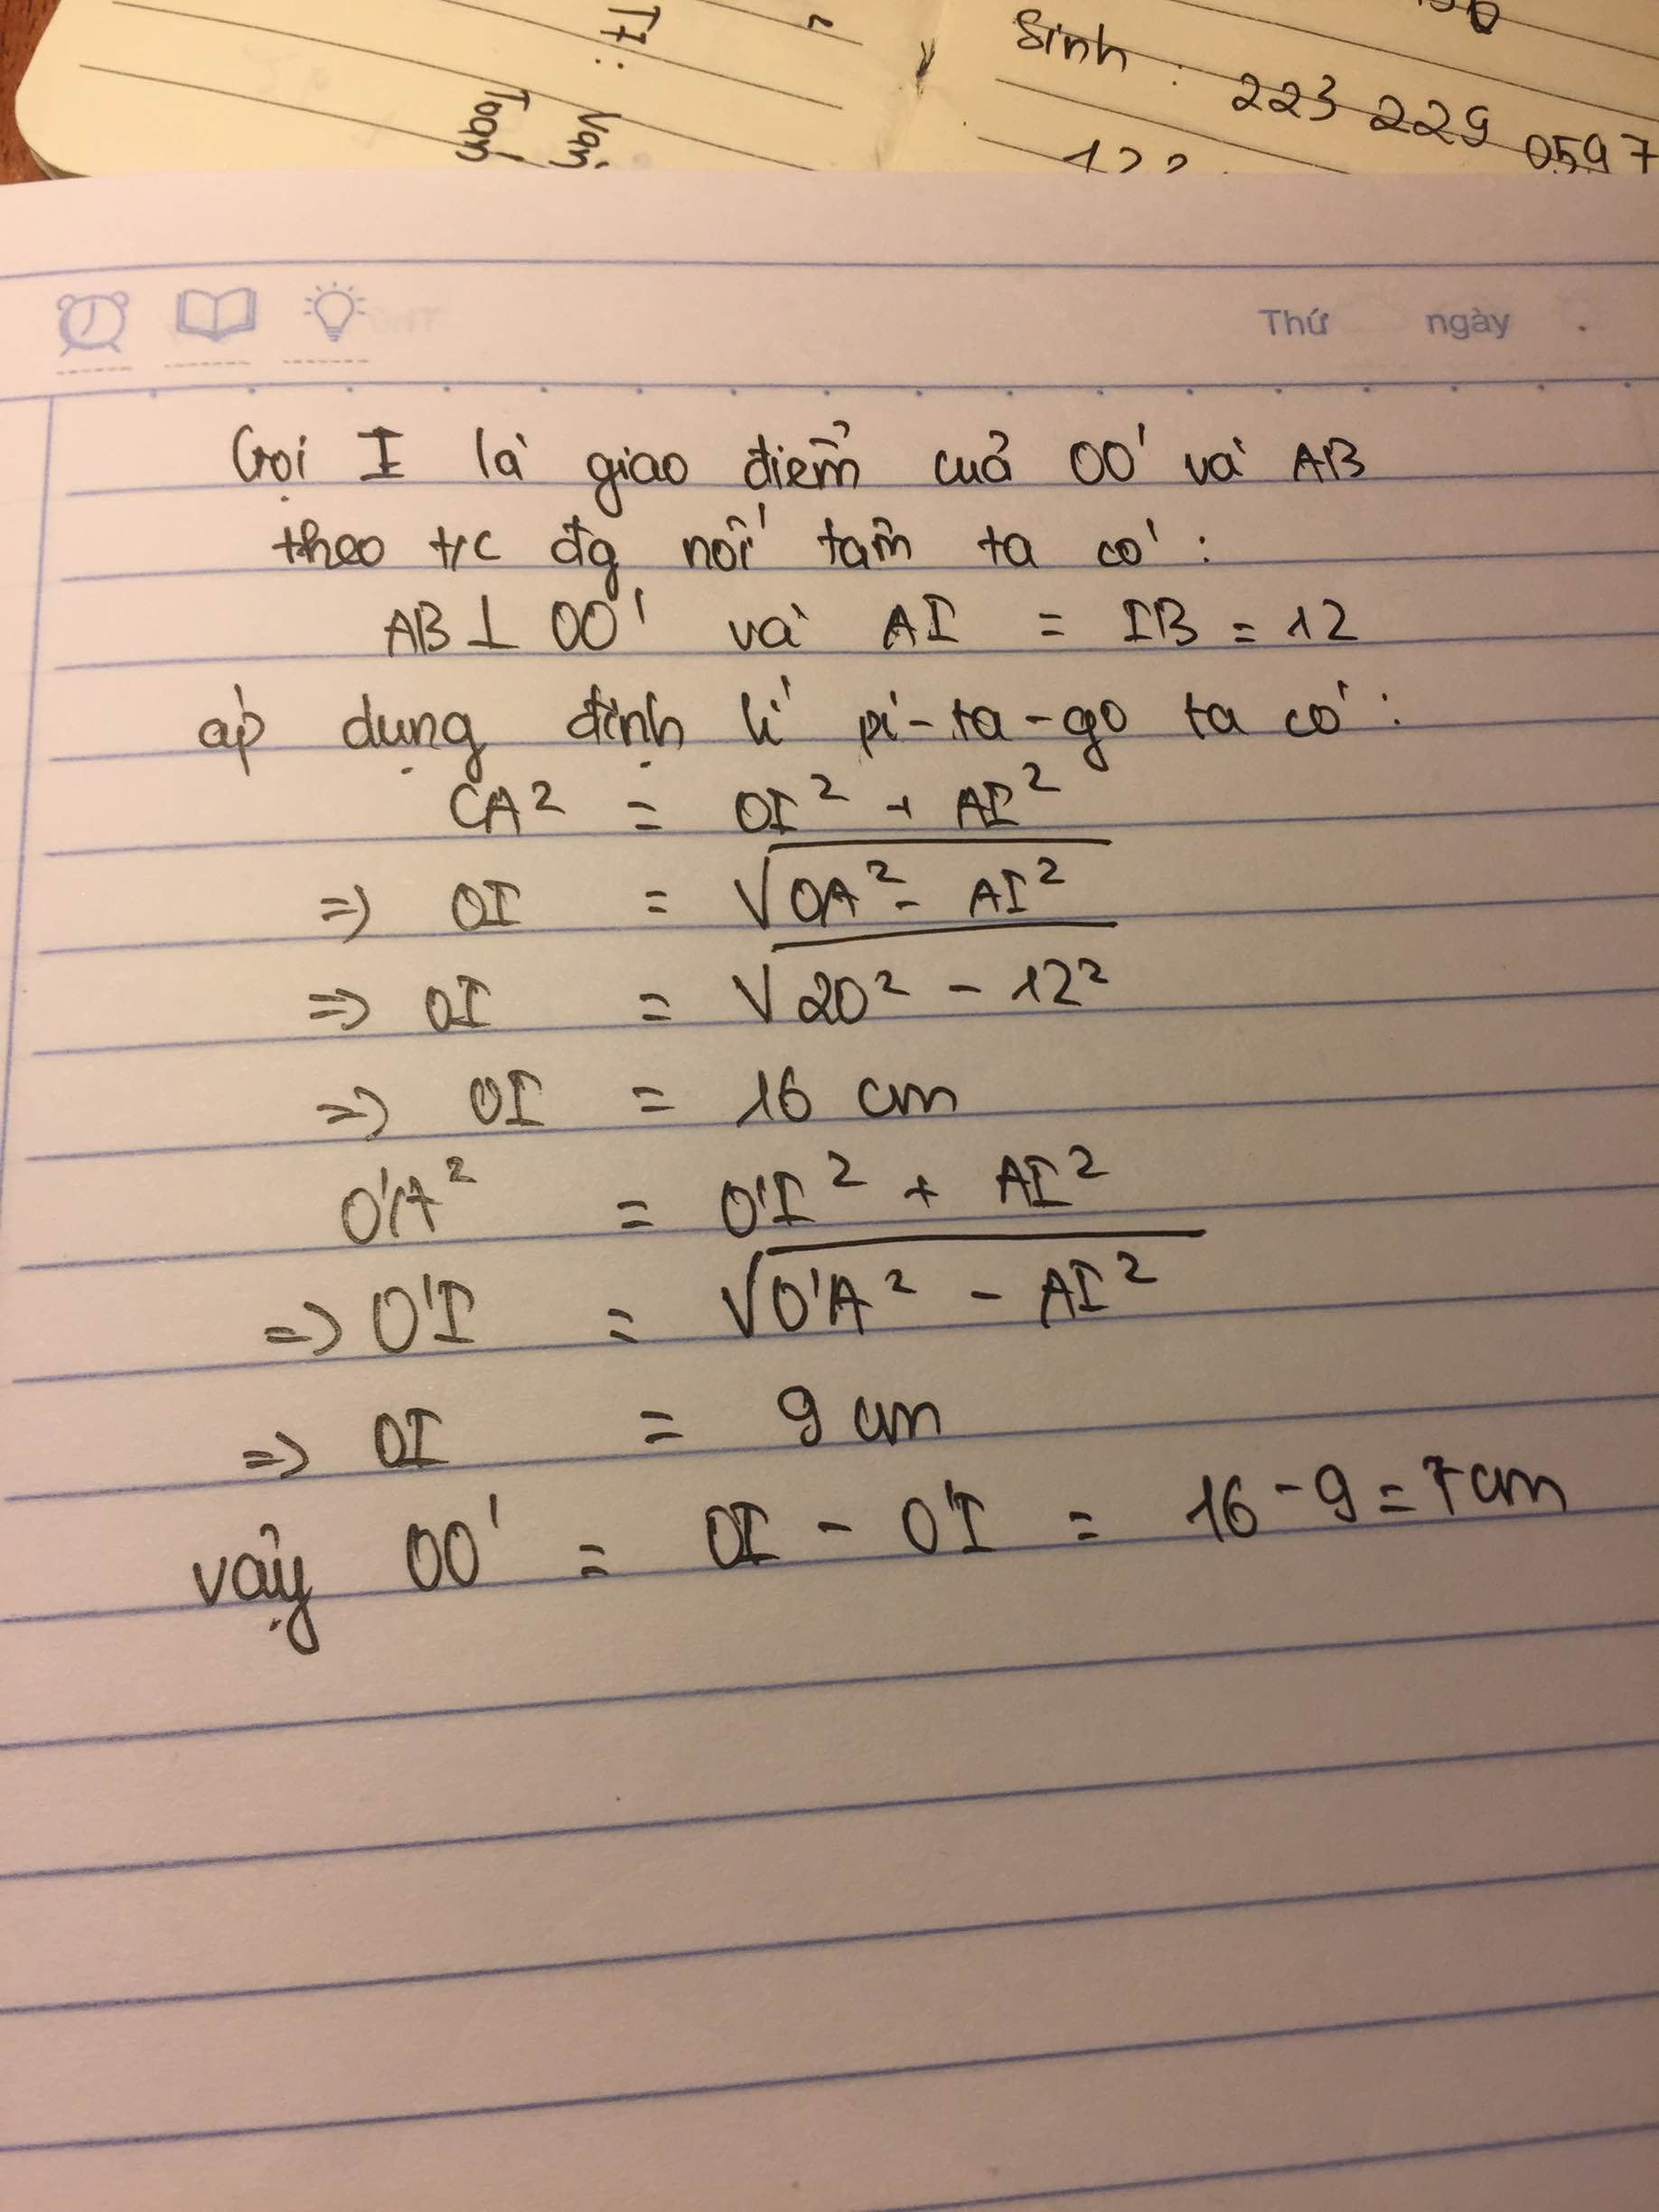 T7:
Văn
Toán
Sinh : 223 229 0597
Thứ ngày
Gọi I là giao điểm cuả OO' và AB
theo t/c đg nối tâm ta có :
AB ⊥ OO' và AI = IB = 12
áp dụng định lí pi-ta-go ta có :
CA² = OI² + AI²
=> OI = √OA² - AI²
=> OI = √20² - 12²
=> OI = 16 cm
O'A² = O'I² + AI²
=> O'I = √O'A² - AI²
=> OI = 9 cm
vậy OO' = OI - O'I = 16 - 9 = 7 cm